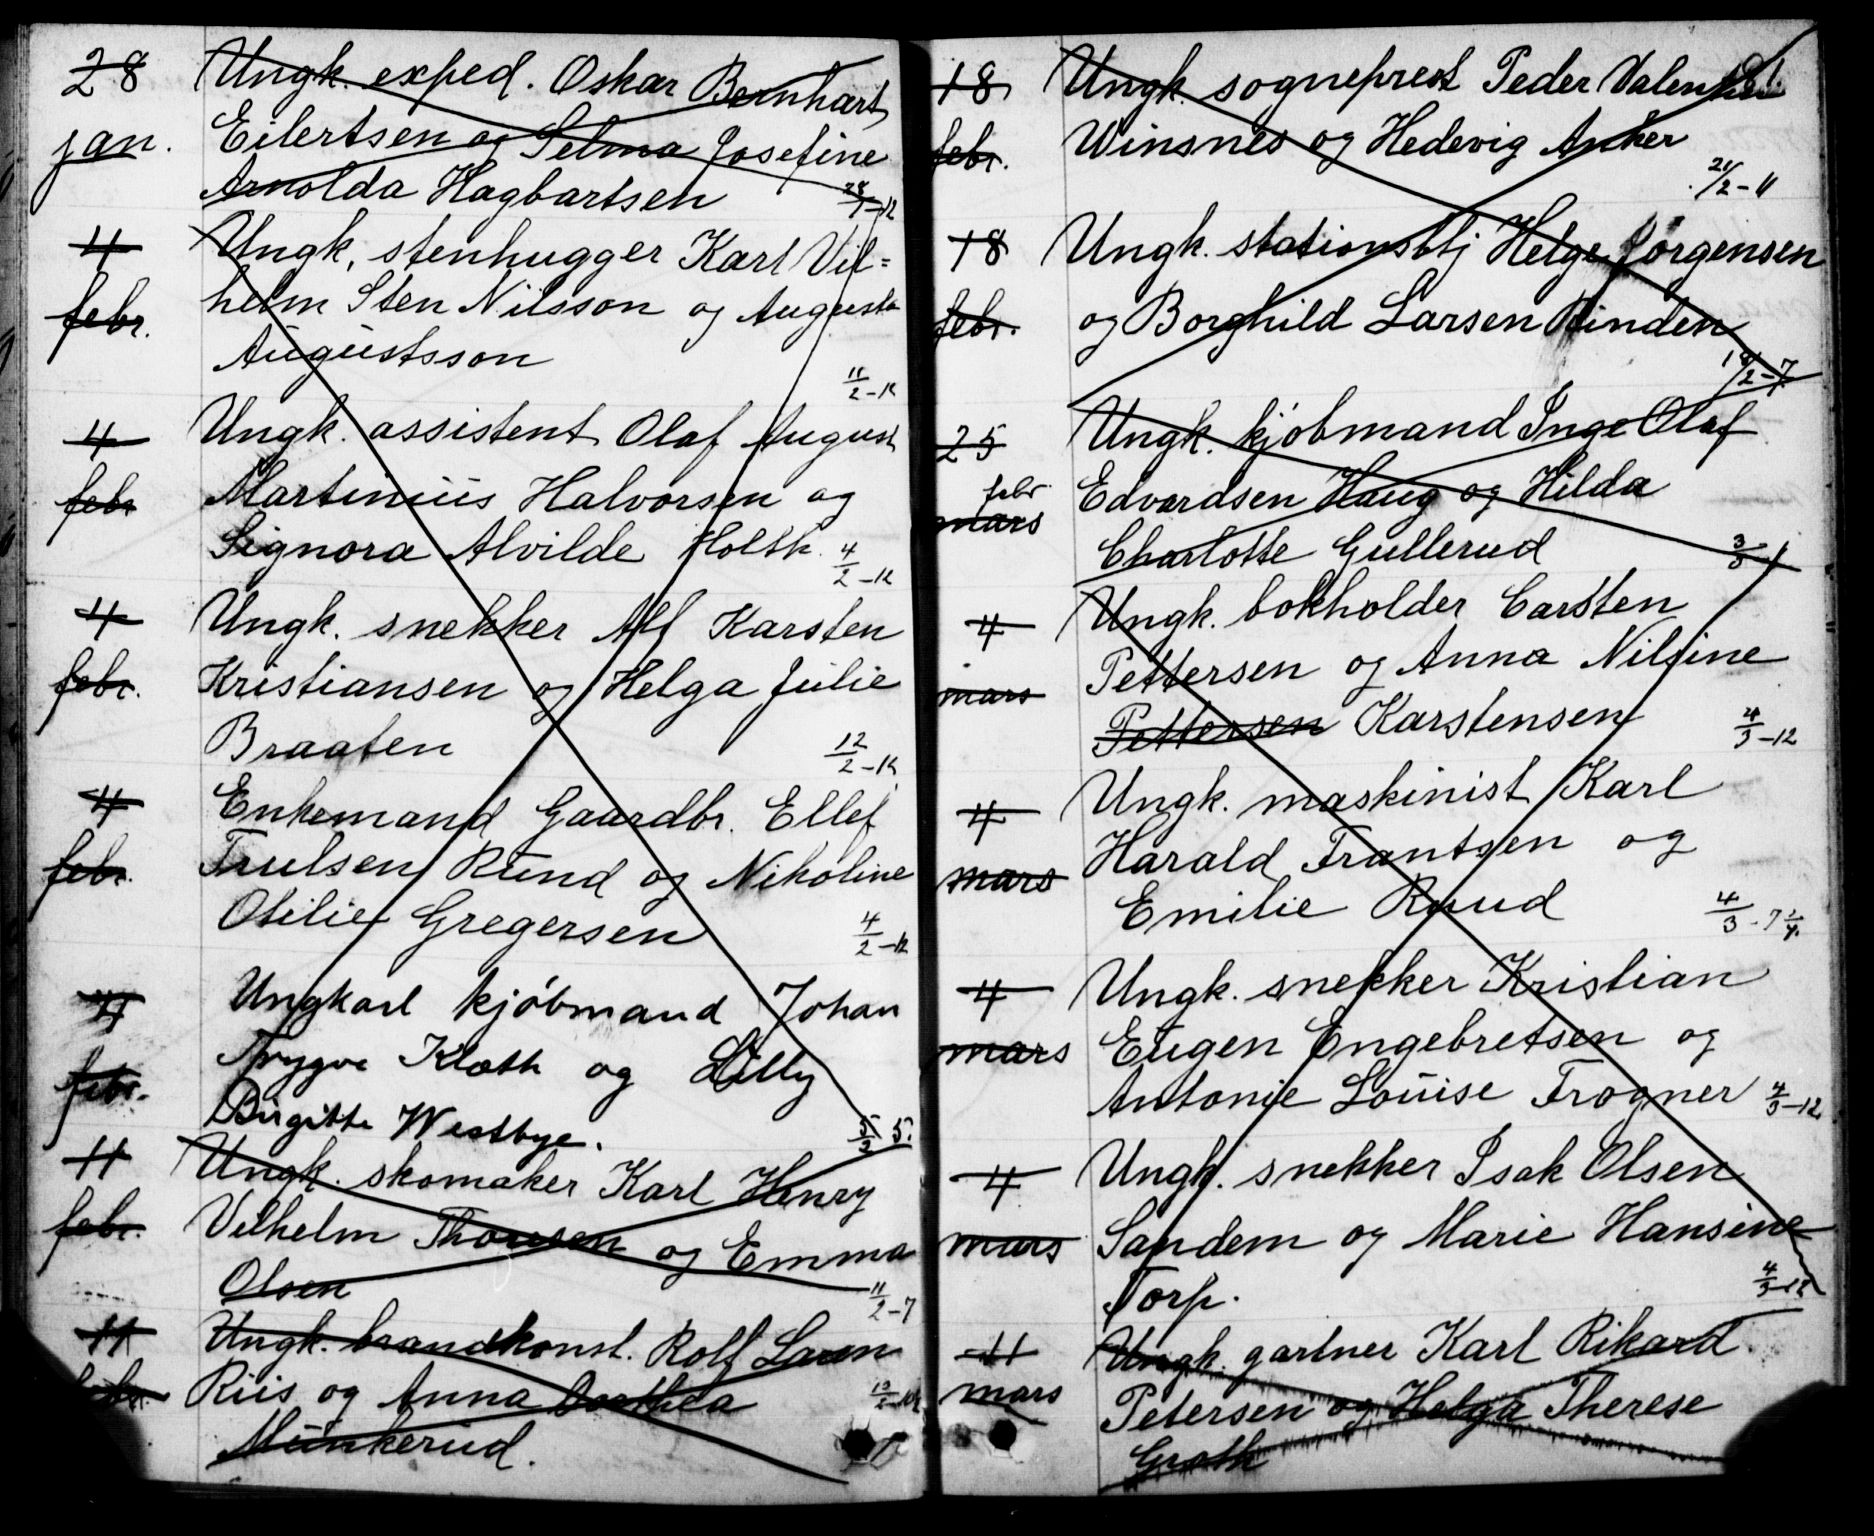 28 Ungk. exped. Oskar Bernhart
jan. Eilertsen og Selma Josefine
Arnolda Hagbartsen 28/1-12
4 Ungk. stenhugger Karl Vil=
febr. helm Sten Nilsson og Augusta
Augustsson 11/2-12
4 Ungk. assistent Olaf August
febr Martinius Halvorsen og
Signora Alvilde Holth 4/2-12
4 Ungk. snekker Alf Karsten
febr. Kristiansen og Helga Julie
Braaten 12/2-12
4 Enkemand Gaardbr. Ellef
febr. Trulsen Rund og Nikoline
Otilie Gregersen 4/2-12
4 Ungkarl kjøbmand Johan
febr. Trygve Klæth og Lilly
Birgitte Westbye. 5/2 5.
11 Ungk. skomaker Karl Henry
febr. Vilhelm Thoresen og Emma
Olsen 11/2-7
11 Ungk. brandkonst. Rolf
febr. Riis og Anna Dorthea
Munkerud.
18 Ungk. sogneprest Peder
febr. Winsnes og Hedevig Anker
21/2-11
18 Ungk. stationsbtj Helge Jørgensen
febr. og Borghild Larsen Rinden
18/2-7
25 Ungk. kjøbmand Inge Olaf
febr
mars Edvardsen Haug og Hilda
Charlotte Gullerud 3/3
4 Ungk. bokholder Carsten
mars Pettersen og Anna Nilsine
Pettersen Karstensen 4/3-12
4 Ungk. maskinist Karl
mars Harald Frantsen og
Emilie Ruud 4/3-7 1/4
4 Ungk. snekker Kristian
mars Eugen Engebretsen og
Antonie Louise Trogner 4/3-12
4 Ungk. snekker Isak Olsen
mars Sandem og Marie Hansine
Torp. 4/3-12
11 Ungk. gartner Karl Rikard
mars Petersen og Helga Therese
Groth